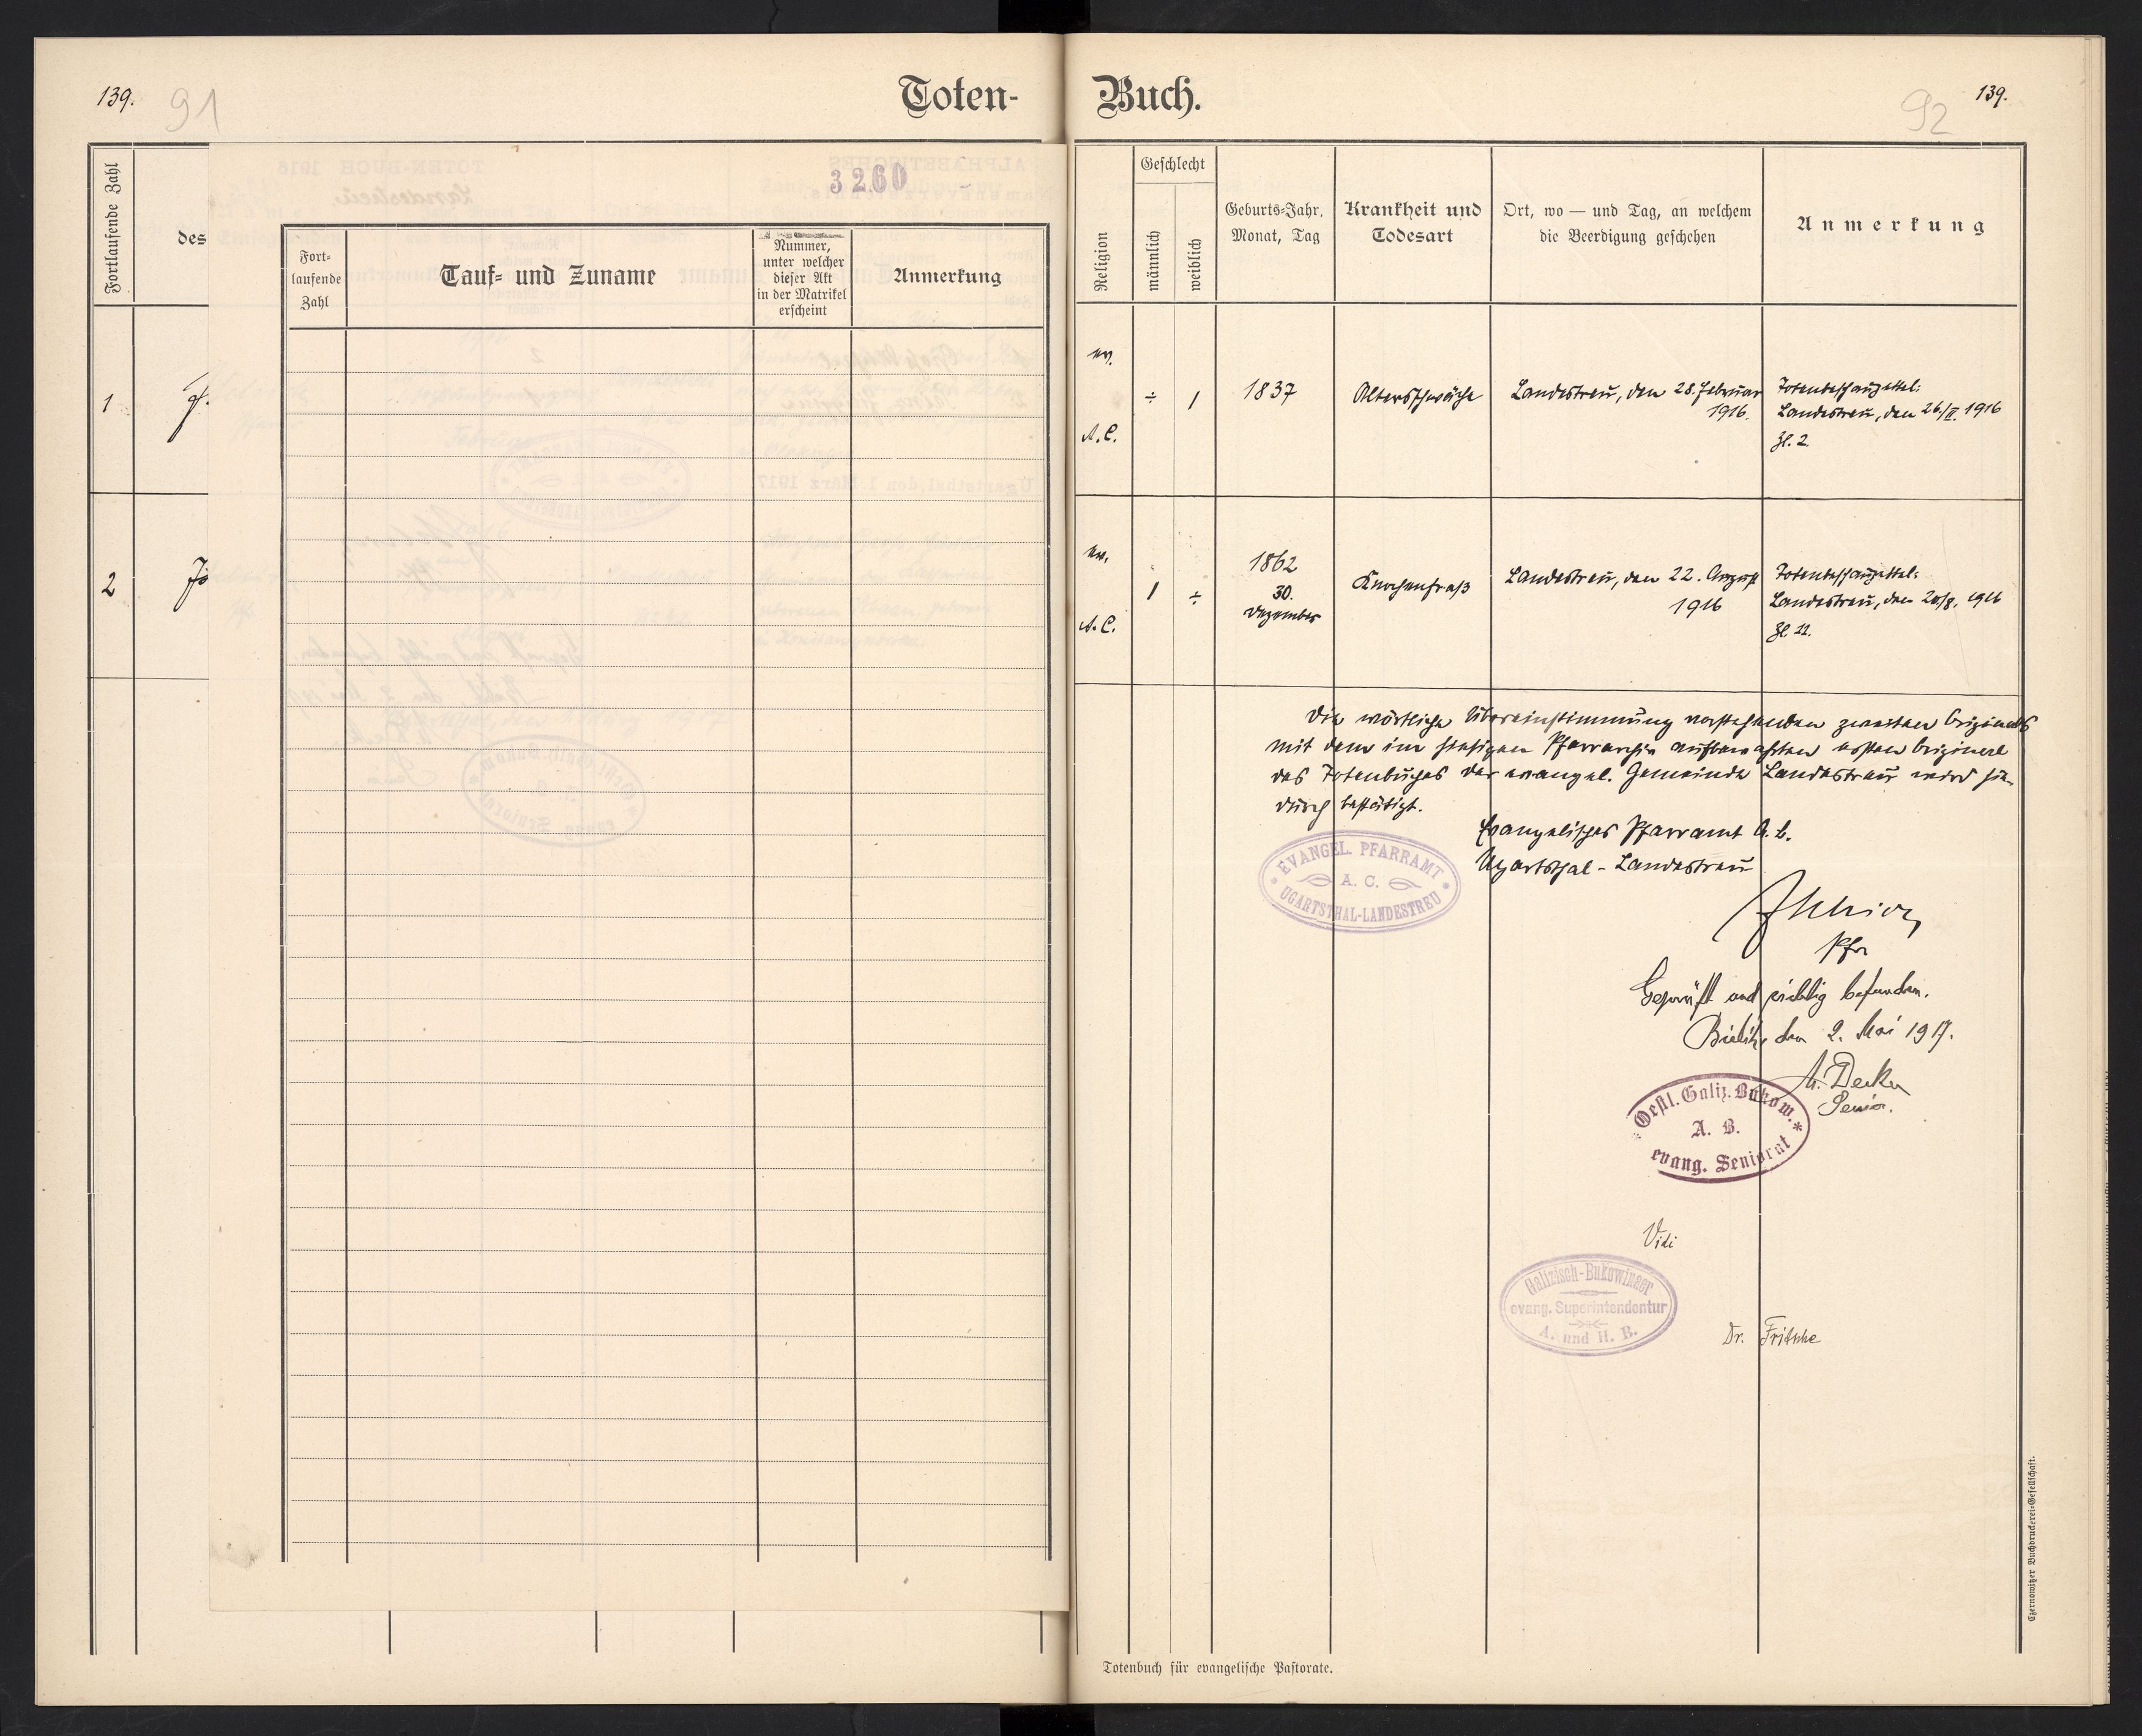 139.
91
Toten-
Buch.
92
139.
Fortlaufende Zahl
des
1
2
3260
Fort-
laufende
Zahl
Tauf- und Zuname
Nummer,
unter welcher
dieser Akt
in der Matrikel
erscheint
Anmerkung
Religion
Geschlecht
männlich
weiblich
Geburts-Jahr,
Monat, Tag
Krankheit und
Todesart
Ort, wo — und Tag, an welchem
die Beerdigung geschehen
Anmerkung
ev.
A. C.
÷
1
1837
Altersschwäche
Landestreu, den 28. Februar
1916.
Totenbeschauzettel:
Landestreu, den 26./II. 1916
Zl. 2.
ev.
A. C.
1
÷
1862
30.
Dezember
Knochenfraß
Landestreu, den 22. August
1916
Totenbeschauzettel:
Landestreu, den 20/8. 1916
Zl. 11.
Die wörtliche Übereinstimmung vorstehenden zweiten Originals
mit dem im hiesigen Pfarrarchiv aufbewahrten ersten Original
des Totenbuches der evangel. Gemeinde Landestreu wird hie-
durch bestätigt.
Evangelisches Pfarramt A. B.
Ugartsthal - Landestreu
EVANGEL. PFARRAMT
A. C.
UGARTSTHAL-LANDESTREU
Pfr
Geprüft und richtig befunden.
Bielitz, den 2. Mai 1917.
Decker
Senior.
Oestl. Galiz. Bukow.
A. B.
evang. Seniorat
Vidi
Galizisch-Bukowinaer
evang. Superintendentur
A. und H. B.
Dr. Fritsche
Totenbuch für evangelische Pastorate.
Czernowitzer Buchdruckerei-Gesellschaft.